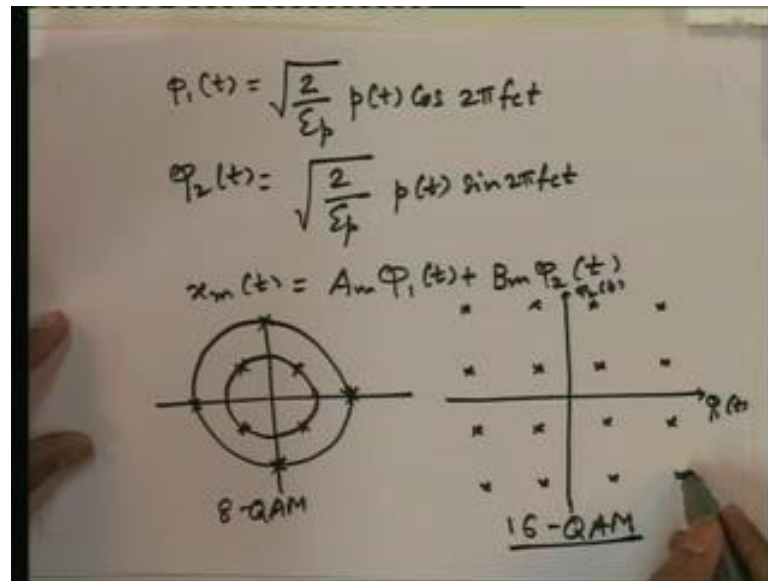 φ₁(t) = √(2/Ɛp) p(t) Cos 2πfct
φ₂(t) = √(2/Ɛp) p(t) sin 2πfct
xm(t) = Am φ₁(t) + Bm φ₂(t)
φ₂(t)
φ₁(t)
8-QAM
16-QAM